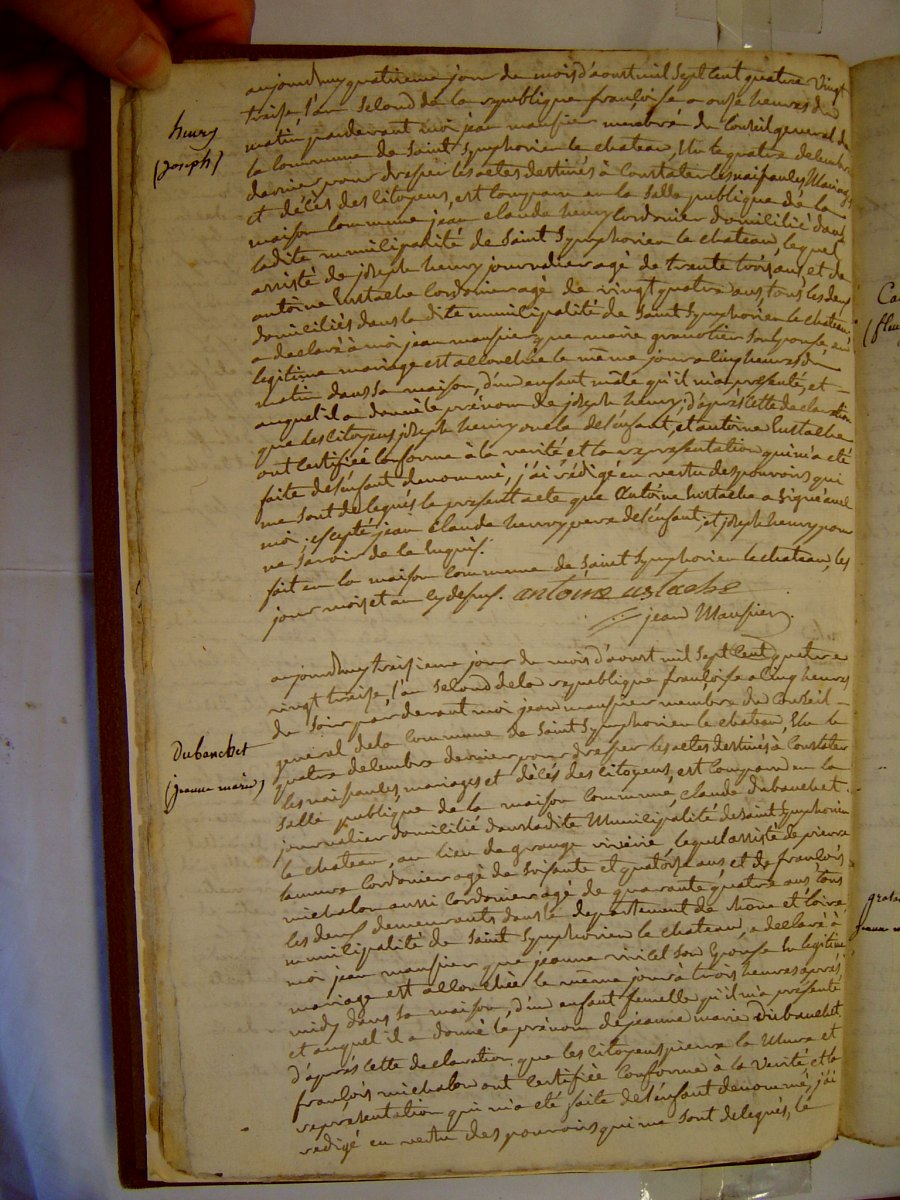 henry
(joseph)
aujourdhuy quatrieme jour du mois d'aoust mil sept cent quatre vingt
treise l'an second de la republique françoise a onse heures du
matin pardevant moi jean maupier membre du Conseil general de
la commune de Saint Symphorien le chateau, Elu le quatre decembre
dernier pour dresser les actes destinés à Constater les naissances Mariages
et décès des Citoyens, est Comparu en la Salle publique de la
maison Commune jean claude henry Cordonier domicilié dans
ladite municipalité de Saint Symphorien le chateau, lequel
assisté de joseph henry journalier agé de trente trois ans, et de
antoine Eustache Cordonier age de vingt quatre ans, tous les deux
domiciliés dans la dite municipalité de Saint Symphorien le chateau,
a declaré à moi jean maupier, que marie son Epouse en
legitime mariage est accouchée le même jour a cinq heures du
matin dans sa maison, d'un enfant mâle qu'il m'a présenté, et
auquel il a donné le prénom de joseph henry; d'après cette declaration
que les Citoyens joseph henry oncle de l'enfant, et antoine Eustache
ont Certifiée Conforme à la verité et la representation qui m'a été
faite de l'enfant denommé, j'ai rédigé en vertu des pouvoirs qui
me sont delegués le présent acte que Antoine Eustache a signé avec
moi; excepté jean Claude henry pere de l'enfant, et joseph henry pour
ne savoir de ce Enquis.
fait en la maison Commune de Saint Symphorien le chateau, les
jour mois et an cy dessus. antoine ustache
jean Maupier
Dubanchet
(jeanne marie)
aujourdhuy treisieme jour du mois d'aoust mil sept Cent quatre
vingt treise, l'an second de la republique françoise a cinq heures
du soir par devant moi jean maupier membre du Conseil
general de la Commune de Saint Symphorien le chateau, Elu le
quatre decembre dernier pour dresser les actes destinés à Constater
les naissances, mariages et décès des Citoyens, est Comparu en la
Salle publique de la maison Commune, claude dubanchet
journalier domicilié dans ladite Municipalité de Saint Symphorien
le chateau, au lieu de grange lequel assisté de pierre
lamure Cordonier agé de soisante et quatorse ans et de françois
michalon aussi Cordonier agé de quarante quatre ans, tous
les deux demeurants dans le departement de rhône et loire
municipalité de Saint Symphorien le chateau, a declaré à
moi jean maupier que jeanne son Epouse En legitime
mariage est accouchée le même jour à trois heures après
midy dans sa maison, d'un enfant femelle qu'il m'a présenté
et auquel il a donné le prénom de jeanne marie Dubanchet.
D'après cette declaration que les Citoyens pierre la Mure et
françois michalon ont Certifiée Conforme à la Verité et la
representation qui m'a été faite de l'enfant denommé, j'ai
redigé en vertu des pouvoirs qui me sont delegués, le